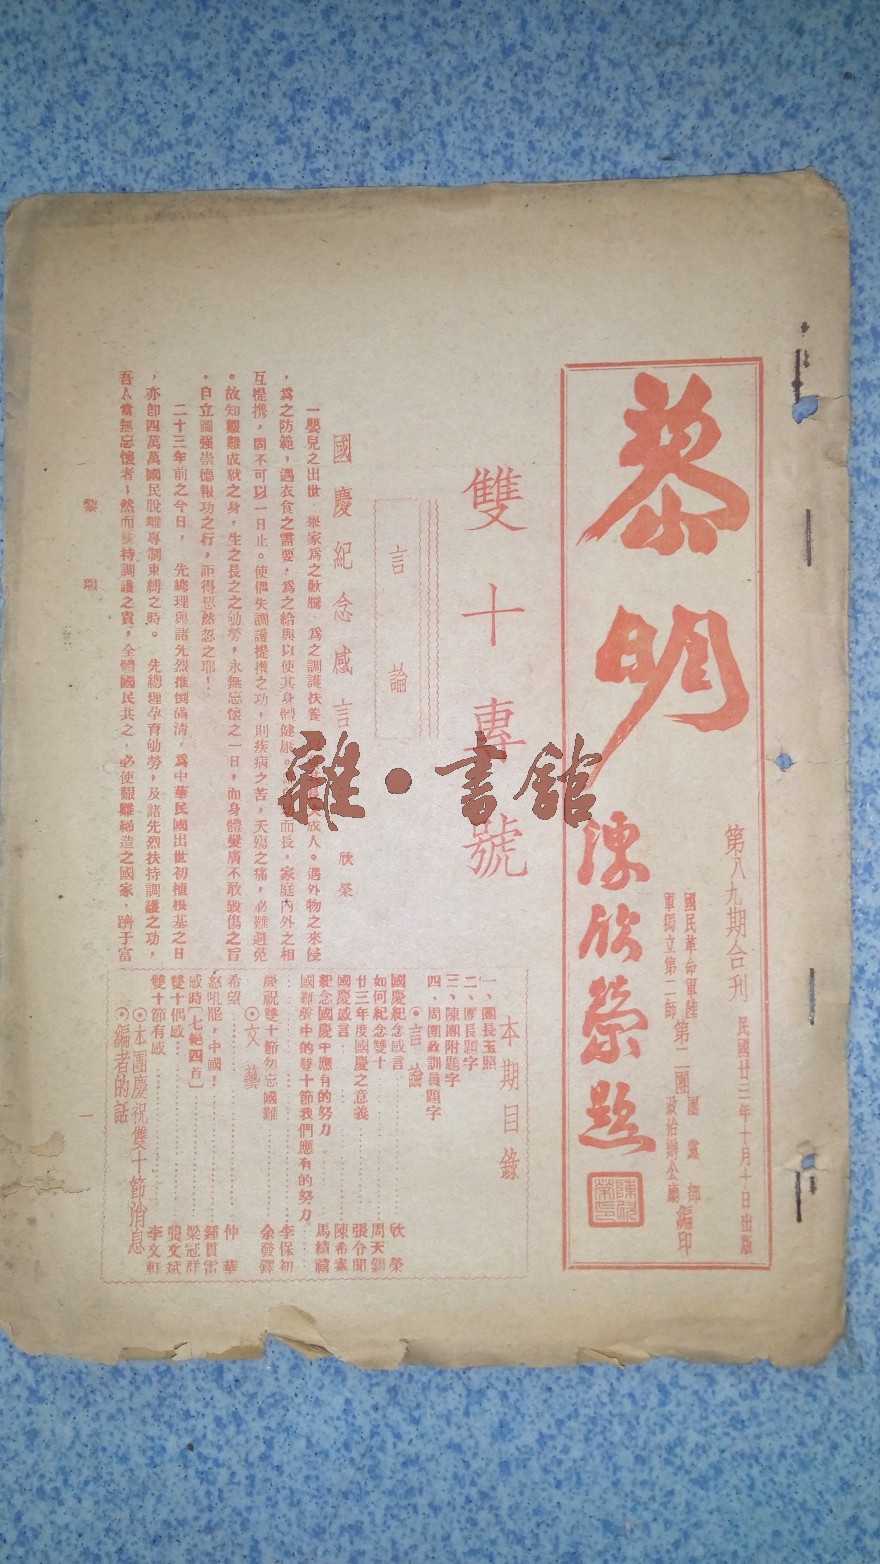 黎明
陳欣榮題
陳欣榮印
第八九期合刊
民國廿三年十月十日出版
國民革命軍陸
軍獨立第二師
第二團
團黨部
政治辦公廳
編印
雙十專號
言論
國慶紀念感言
欣榮
一嬰兒之出世，舉家為之歡騰，為之調護扶養
成人。遇外物之來侵
，為之防範，遇衣食之需要，為之給與以使其身體健康。
而長，家庭內外之相
互提携，固不可以一日止。使偶失調護提携之功，則疾病之苦，夭殤之痛，必難避免
。故知艱難成就之身，生之長之之劬勞，永無忘懷之一日，而身體髮膚不敢毀傷之旨
，自立圖強崇德報功之行，詎得恝然忽之耶！
二十三年前之今日，　先總理與諸先烈推倒滿清，為中華民國出世初植根基之日
，亦卽四萬萬國民脫離專制束縛之時。　先總理孕育劬勞，及諸先烈扶持調護之功，
吾人當無忘懷者，然而扶持調護之責，全體國民共之，必使艱難締造之國家，躋于富
黎明
一
本期目錄
一、團長玉照
二、團長題字
三、陳團附題字
四、周團政訓員題字
⊙言論
國慶紀念感言……欣榮
如何紀念雙十……周天錫
廿三年度國慶之意義……張令聞
國慶感言……陳希素
紀念國慶中應有的努力……馬績
國難聲中的雙十節我們應有的努力……
……李保初
慶祝雙十節勿忘國難……余發鐸
⊙文藝
希望……仲華
怒吼罷，中國！……鍾貫雷
感時［七絕四首］……梁冠群
雙十偶感……龔文斌
雙十節有感……李文軒
⊙本團慶祝雙十節消息
⊙編者的話
雜·書館